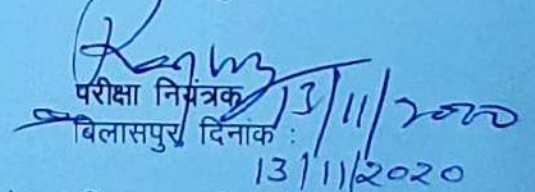 परीक्षा नियंत्रक 13/11/2020
बिलासपुर दिनांक :
13/11/2020